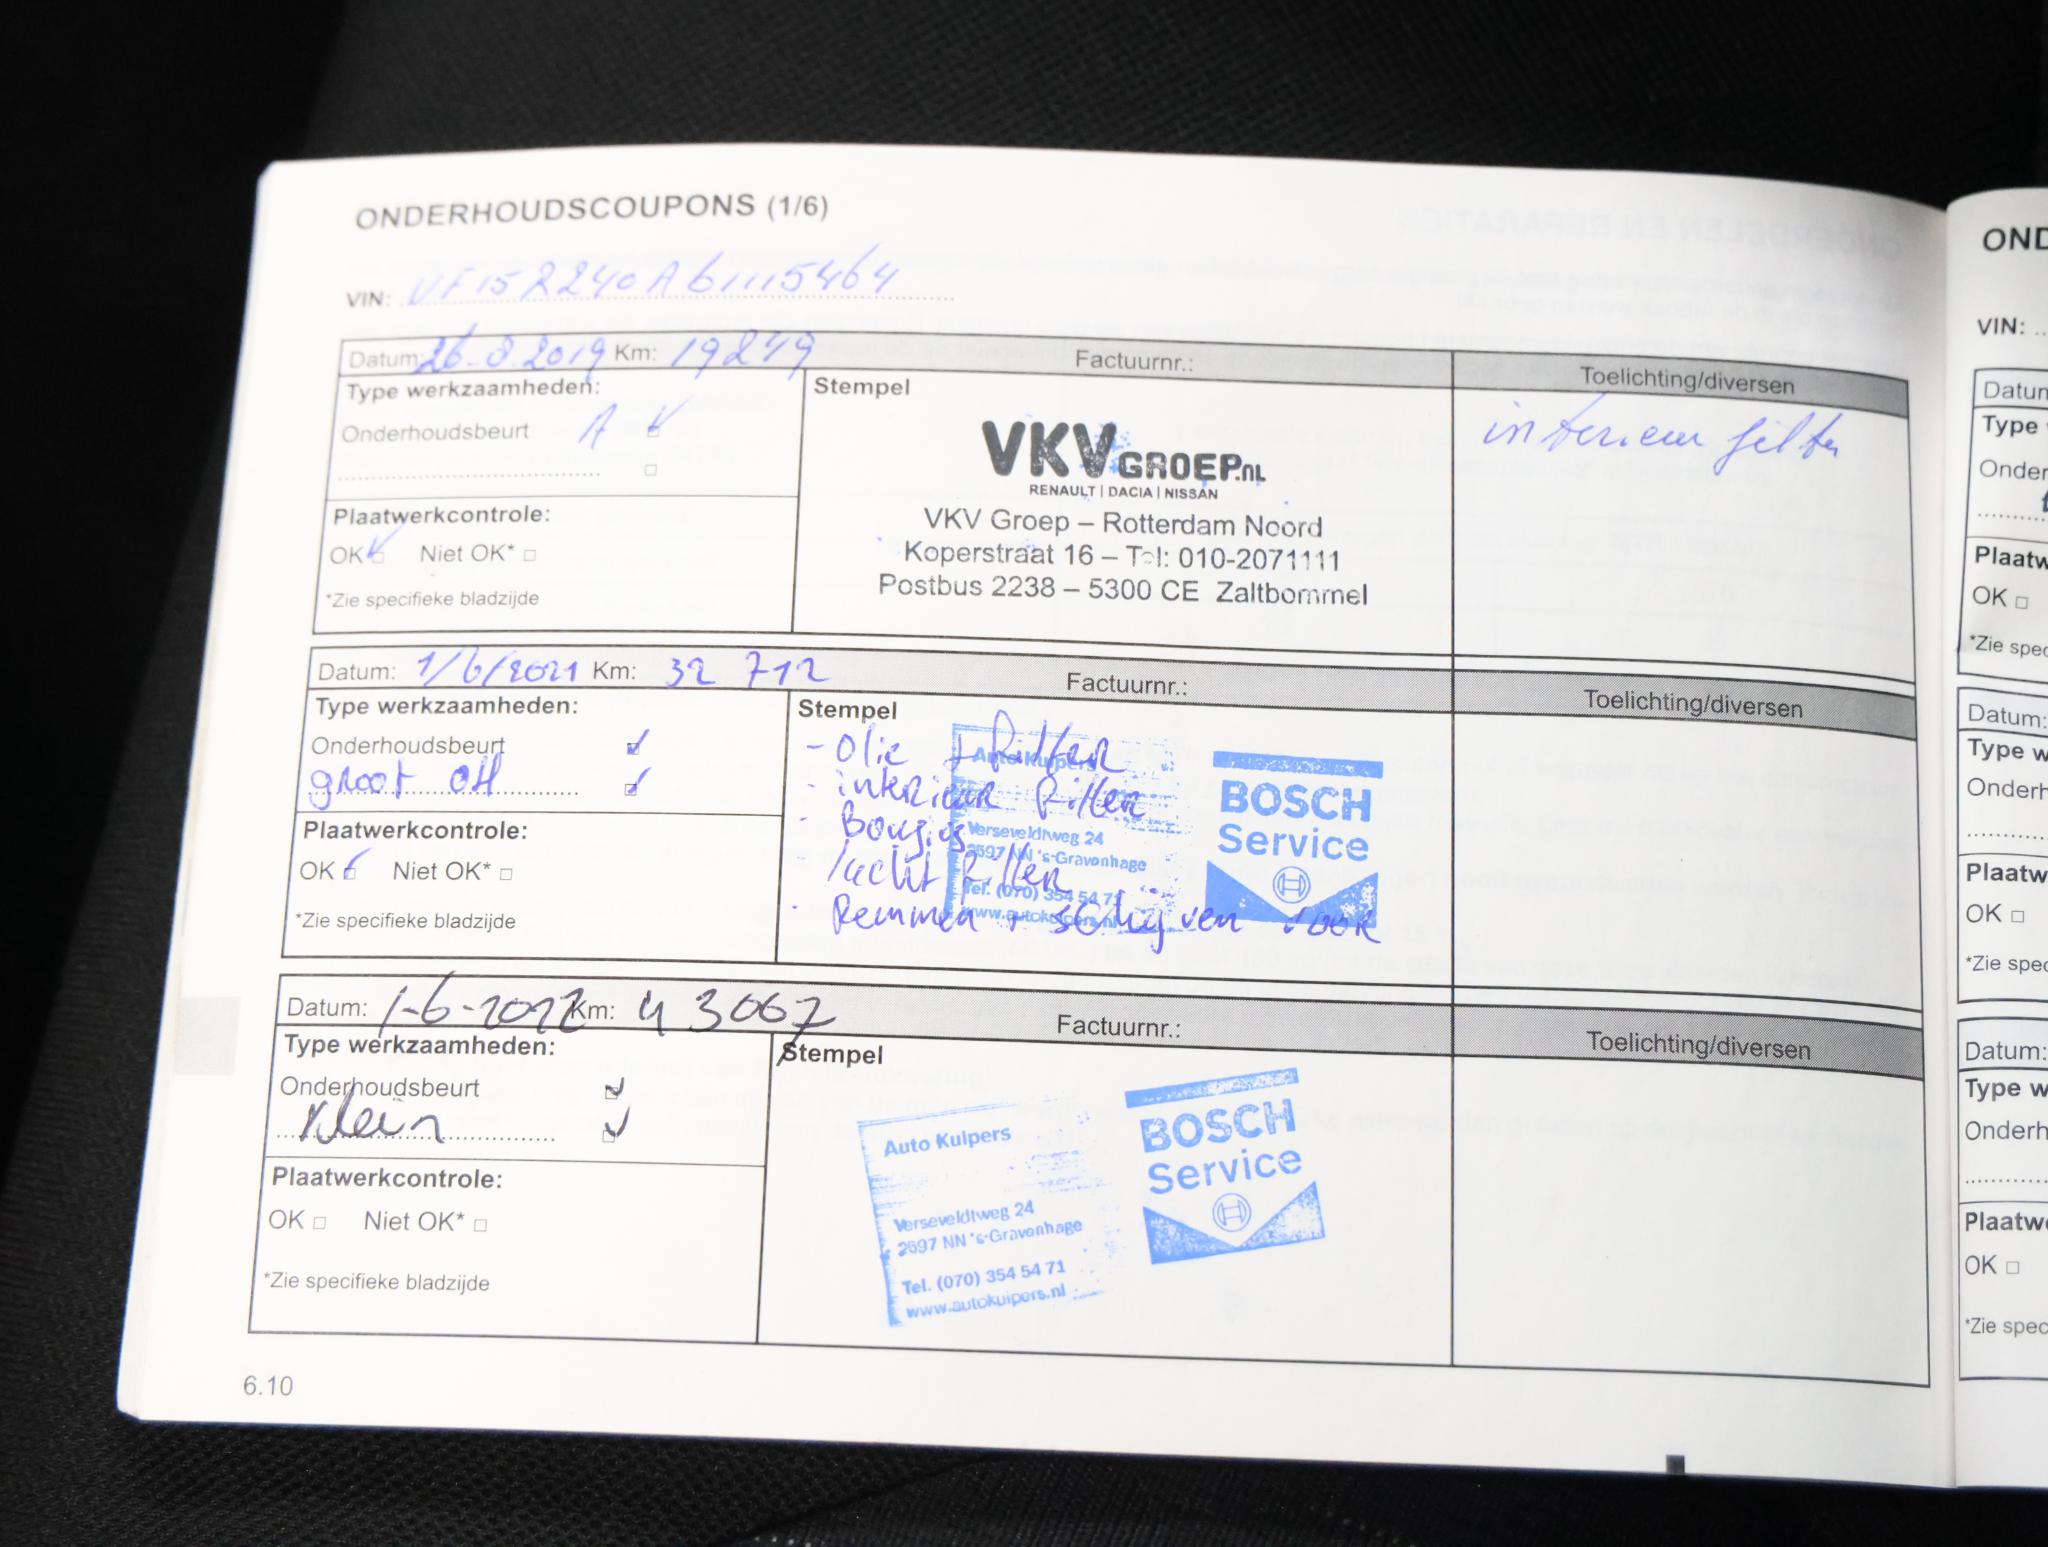 ONDERHOUDSCOUPONS (1/6)
VIN: VF15R240A61115464
Datum: 26-8-2019 Km: 19249 Factuurnr.: Toelichting/diversen
Type werkzaamheden: Stempel
Onderhoudsbeurt A interieur filter
VKV GROEP.NL
RENAULT | DACIA | NISSAN
Plaatwerkcontrole:
VKV Groep – Rotterdam Noord
OK Niet OK*
Koperstraat 16 – Tel: 010-2071111
*Zie specifieke bladzijde
Postbus 2238 – 5300 CE Zaltbommel
Datum: 1/6/2021 Km: 32 712 Factuurnr.: Toelichting/diversen
Type werkzaamheden: Stempel
Onderhoudsbeurt
groot OH
Plaatwerkcontrole:
OK Niet OK*
*Zie specifieke bladzijde
- olie + Filter
- interieur Filter
- Bougies
- lucht Filter
- Remmen + schijven voor
Auto Kuipers
Verseveldtweg 24
2597 NN 's-Gravenhage
Tel. (070) 354 54 71
www.autokuipers.nl
BOSCH
Service
Datum: 1-6-2022 Km: 43067 Factuurnr.: Toelichting/diversen
Type werkzaamheden: Stempel
Onderhoudsbeurt
Klein
Plaatwerkcontrole:
OK Niet OK*
*Zie specifieke bladzijde
Auto Kuipers
Verseveldtweg 24
2597 NN 's-Gravenhage
Tel. (070) 354 54 71
www.autokuipers.nl
BOSCH
Service
6.10
OND
VIN:
Datum
Type
Onder
Plaatw
OK
*Zie spec
Datum:
Type w
Onderh
Plaatw
OK
*Zie spec
Datum:
Type w
Onderh
Plaatwe
OK
*Zie spec